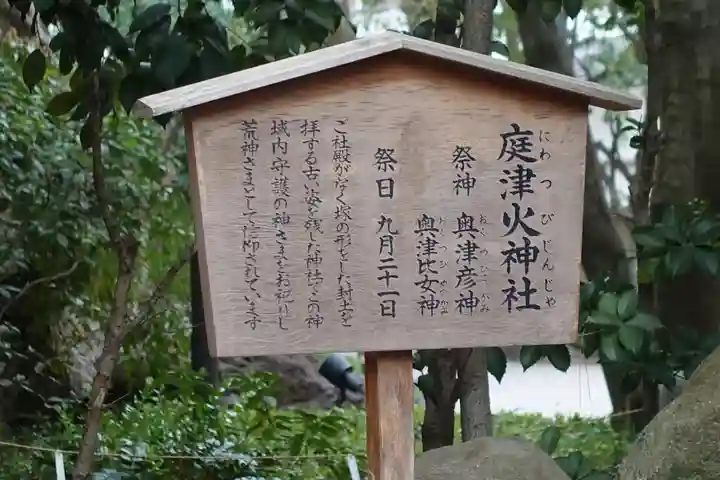 庭津火神社
にわつびじんじゃ
祭神 奥津彦神
おくつひこかみ
奥津比女神
おくつひめかみ
祭日 九月二十一日
ご社殿がなく塚の形をした封土を
拝する古い姿を残した神社でこの神
域内守護の神さまをお祀りし
荒神さまとして信仰されています